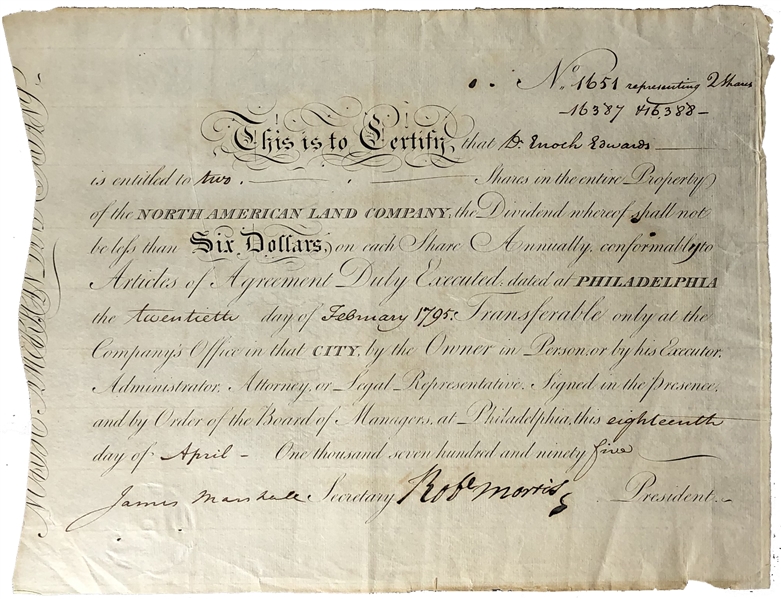 No. 1651 representing 2 Shares
16387 & 16,388
This is to Certify, that Dr. Enoch Edwards
is entitled to two Shares in the entire Property
of the NORTH AMERICAN LAND COMPANY, the Dividend whereof shall not
be less than Six Dollars, on each Share Annually, conformably to
Articles of Agreement Duly Executed, dated at PHILADELPHIA
the twentieth day of February 1795: Transferable only at the
Company's Office in that CITY, by the Owner in Person, or by his Executor,
Administrator, Attorney, or Legal Representative. Signed in the presence,
and by Order of the Board of Managers, at Philadelphia, this eighteenth
day of April One thousand seven hundred and ninety five
James Marshall Secretary Robt Morris President.